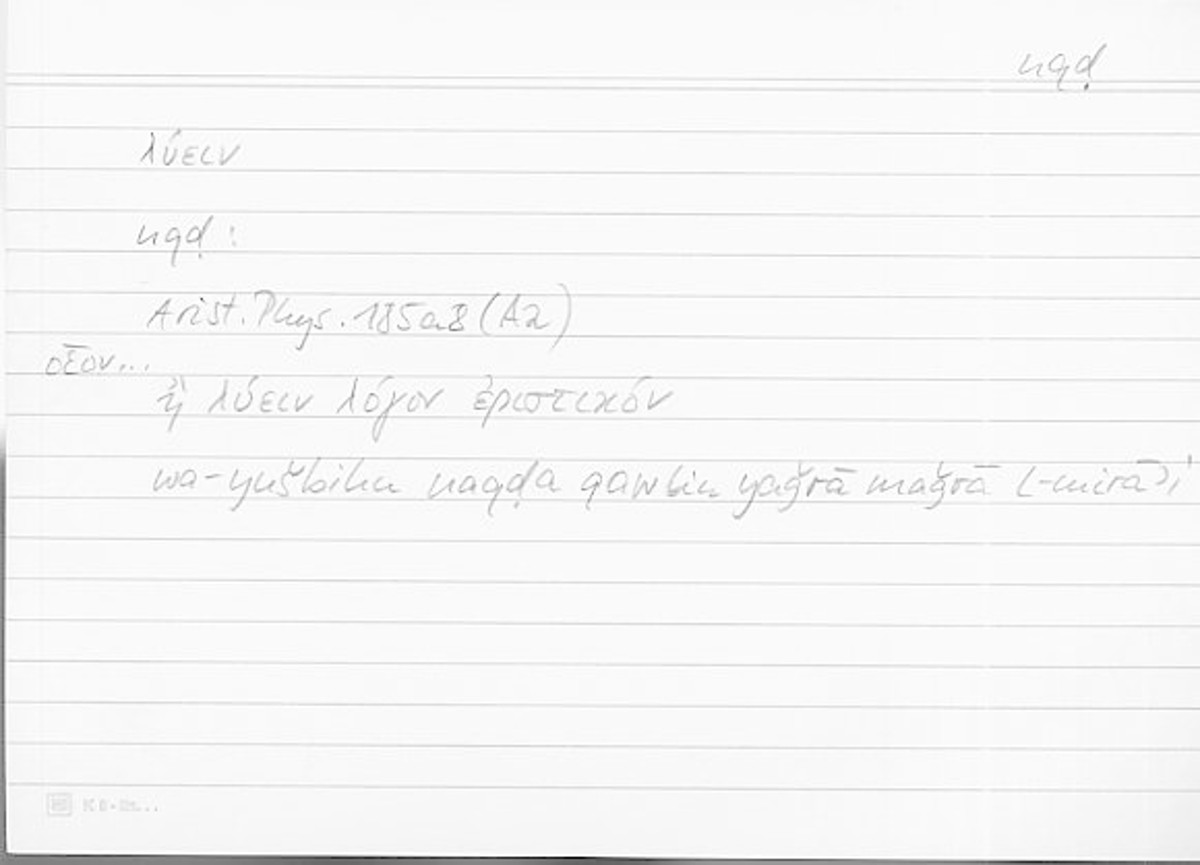 nqḍ
λύειν
nqḍ :
Arist. Phys. 185a8 (A2)
οἷον...
ἢ λύειν λόγον ἐριστικόν
wa-yušbihu naqḍa qawlin yaǧrā maǧrā l-mirāʾi